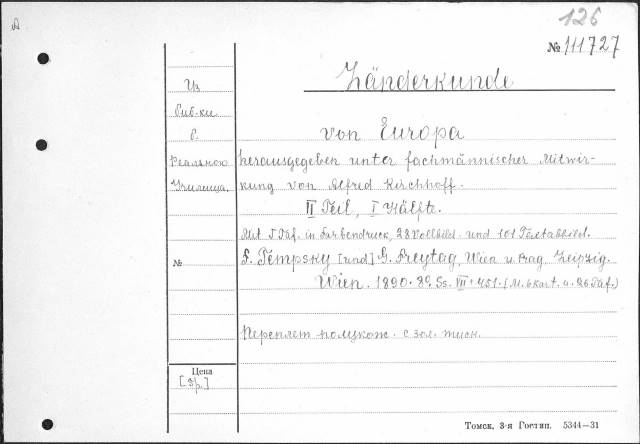 A
126
№ 111727
Länderkunde
Из
биб-ки
б.
Реального
Училища.
von Europa
herausgegeben unter fachmännischer Mitwir-
kung von Alfred Kirchhoff.
II Teil, I Hälfte.
Mit 5 Taf. in Farbendruck, 28 Vollbild. und 101 Textabbild.
№
F. Tempsky [und] G. Freytag, Wien u. Prag. Leipzig.
Wien. 1890. 8º. Ss. VII+451. (M. 6 Kart. u. 26 Taf.)
Переплет полукож. с зол. тисн.
Цена
[3р.]
Томск, 3-я Гостип. 5344—31